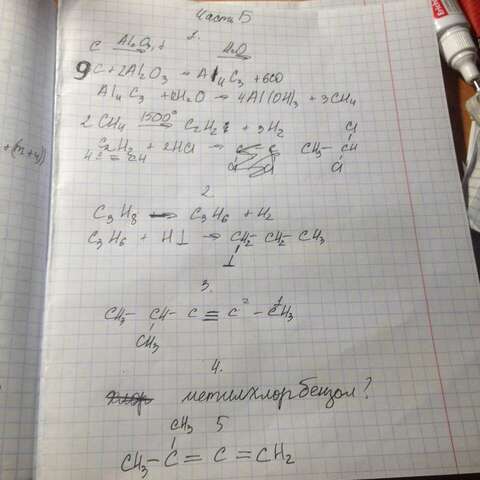 Часть Б
1.
C Al2O3, t H2O
9C + 2Al2O3 → Al4C3 + 6CO
Al4C3 + 12H2O → 4Al(OH)3 + 3CH4
2CH4 1500° C2H2 + 3H2
C2H2 + 2HCl → CH3 - CH
Cl
Cl
HC ≡ CH
+(n+4))
2
C3H8 → C3H6 + H2
C3H6 + HI → CH2 - CH2 - CH3
I
3.
CH3 - CH - C ≡ C2 - C1H3
CH3
4.
метилхлорбензол?
CH3 5
CH3 - C = C = CH2